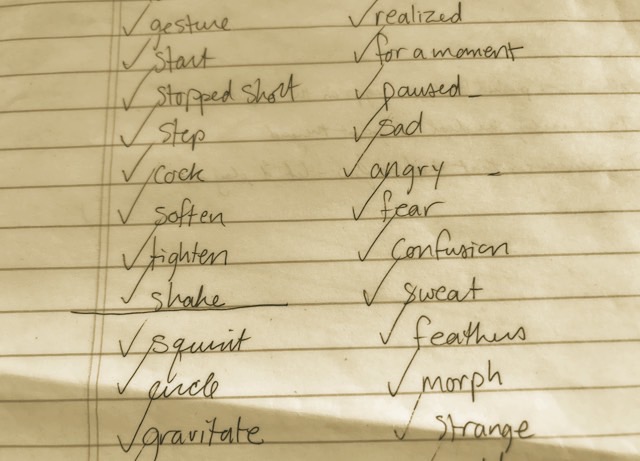 ✓ gesture
✓ start
✓ stopped short
✓ step
✓ cock
✓ soften
✓ tighten
✓ shake
✓ squint
✓ circle
✓ gravitate
✓ realized
✓ for a moment
✓ paused
✓ sad
✓ angry
✓ fear
✓ confusion
✓ sweat
✓ feathers
✓ morph
✓ strange